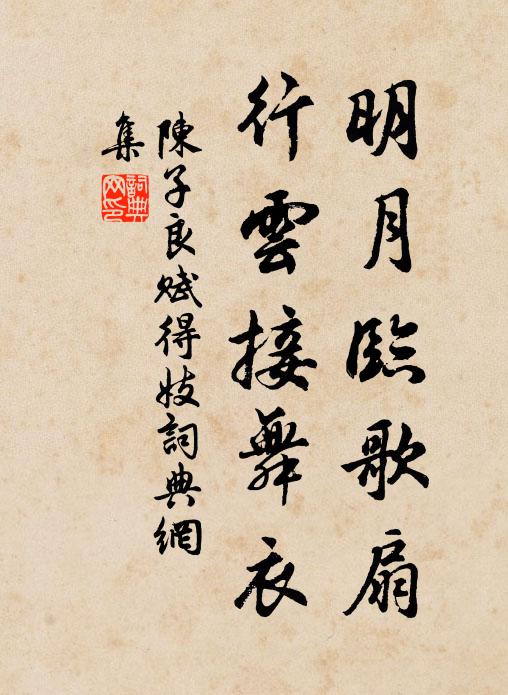 明月臨歌扇
行雲接舞衣
陳子良賦得妓詞典網
集
詞典
網印